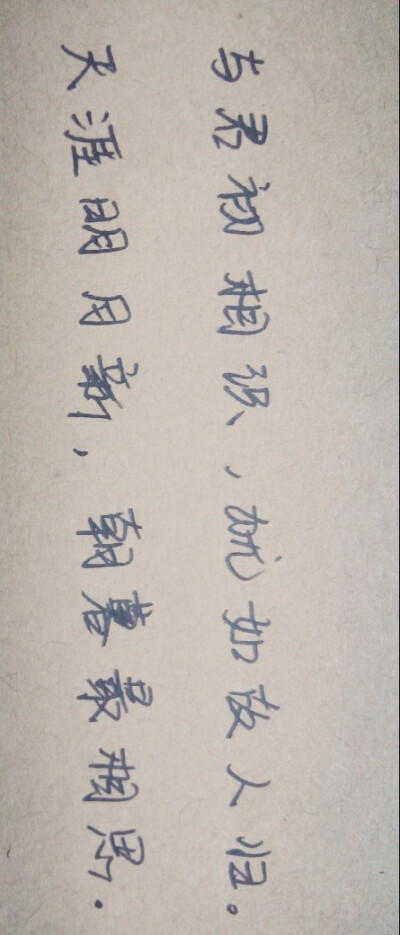 与君初相识，犹如故人归。
天涯明月新，朝暮最相思。